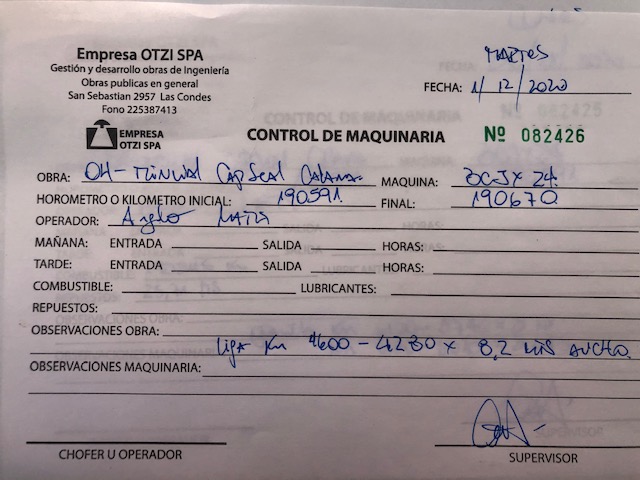 Empresa OTZI SPA
Gestión y desarrollo obras de Ingeniería
Obras publicas en general
San Sebastian 2957 Las Condes
Fono 225387413
Martes
FECHA: 1/12/2020
EMPRESA
OTZI SPA
CONTROL DE MAQUINARIA
Nº 082426
OBRA: Cap Seal MAQUINA:
HOROMETRO O KILOMETRO INICIAL: 190591 FINAL: 190670
OPERADOR: Angelo
MAÑANA: ENTRADA SALIDA HORAS:
TARDE: ENTRADA SALIDA HORAS:
COMBUSTIBLE: LUBRICANTES:
REPUESTOS:
OBSERVACIONES OBRA:
Km 4600 - 4230 x 8,2 mts ancho
OBSERVACIONES MAQUINARIA:
CHOFER U OPERADOR
SUPERVISOR